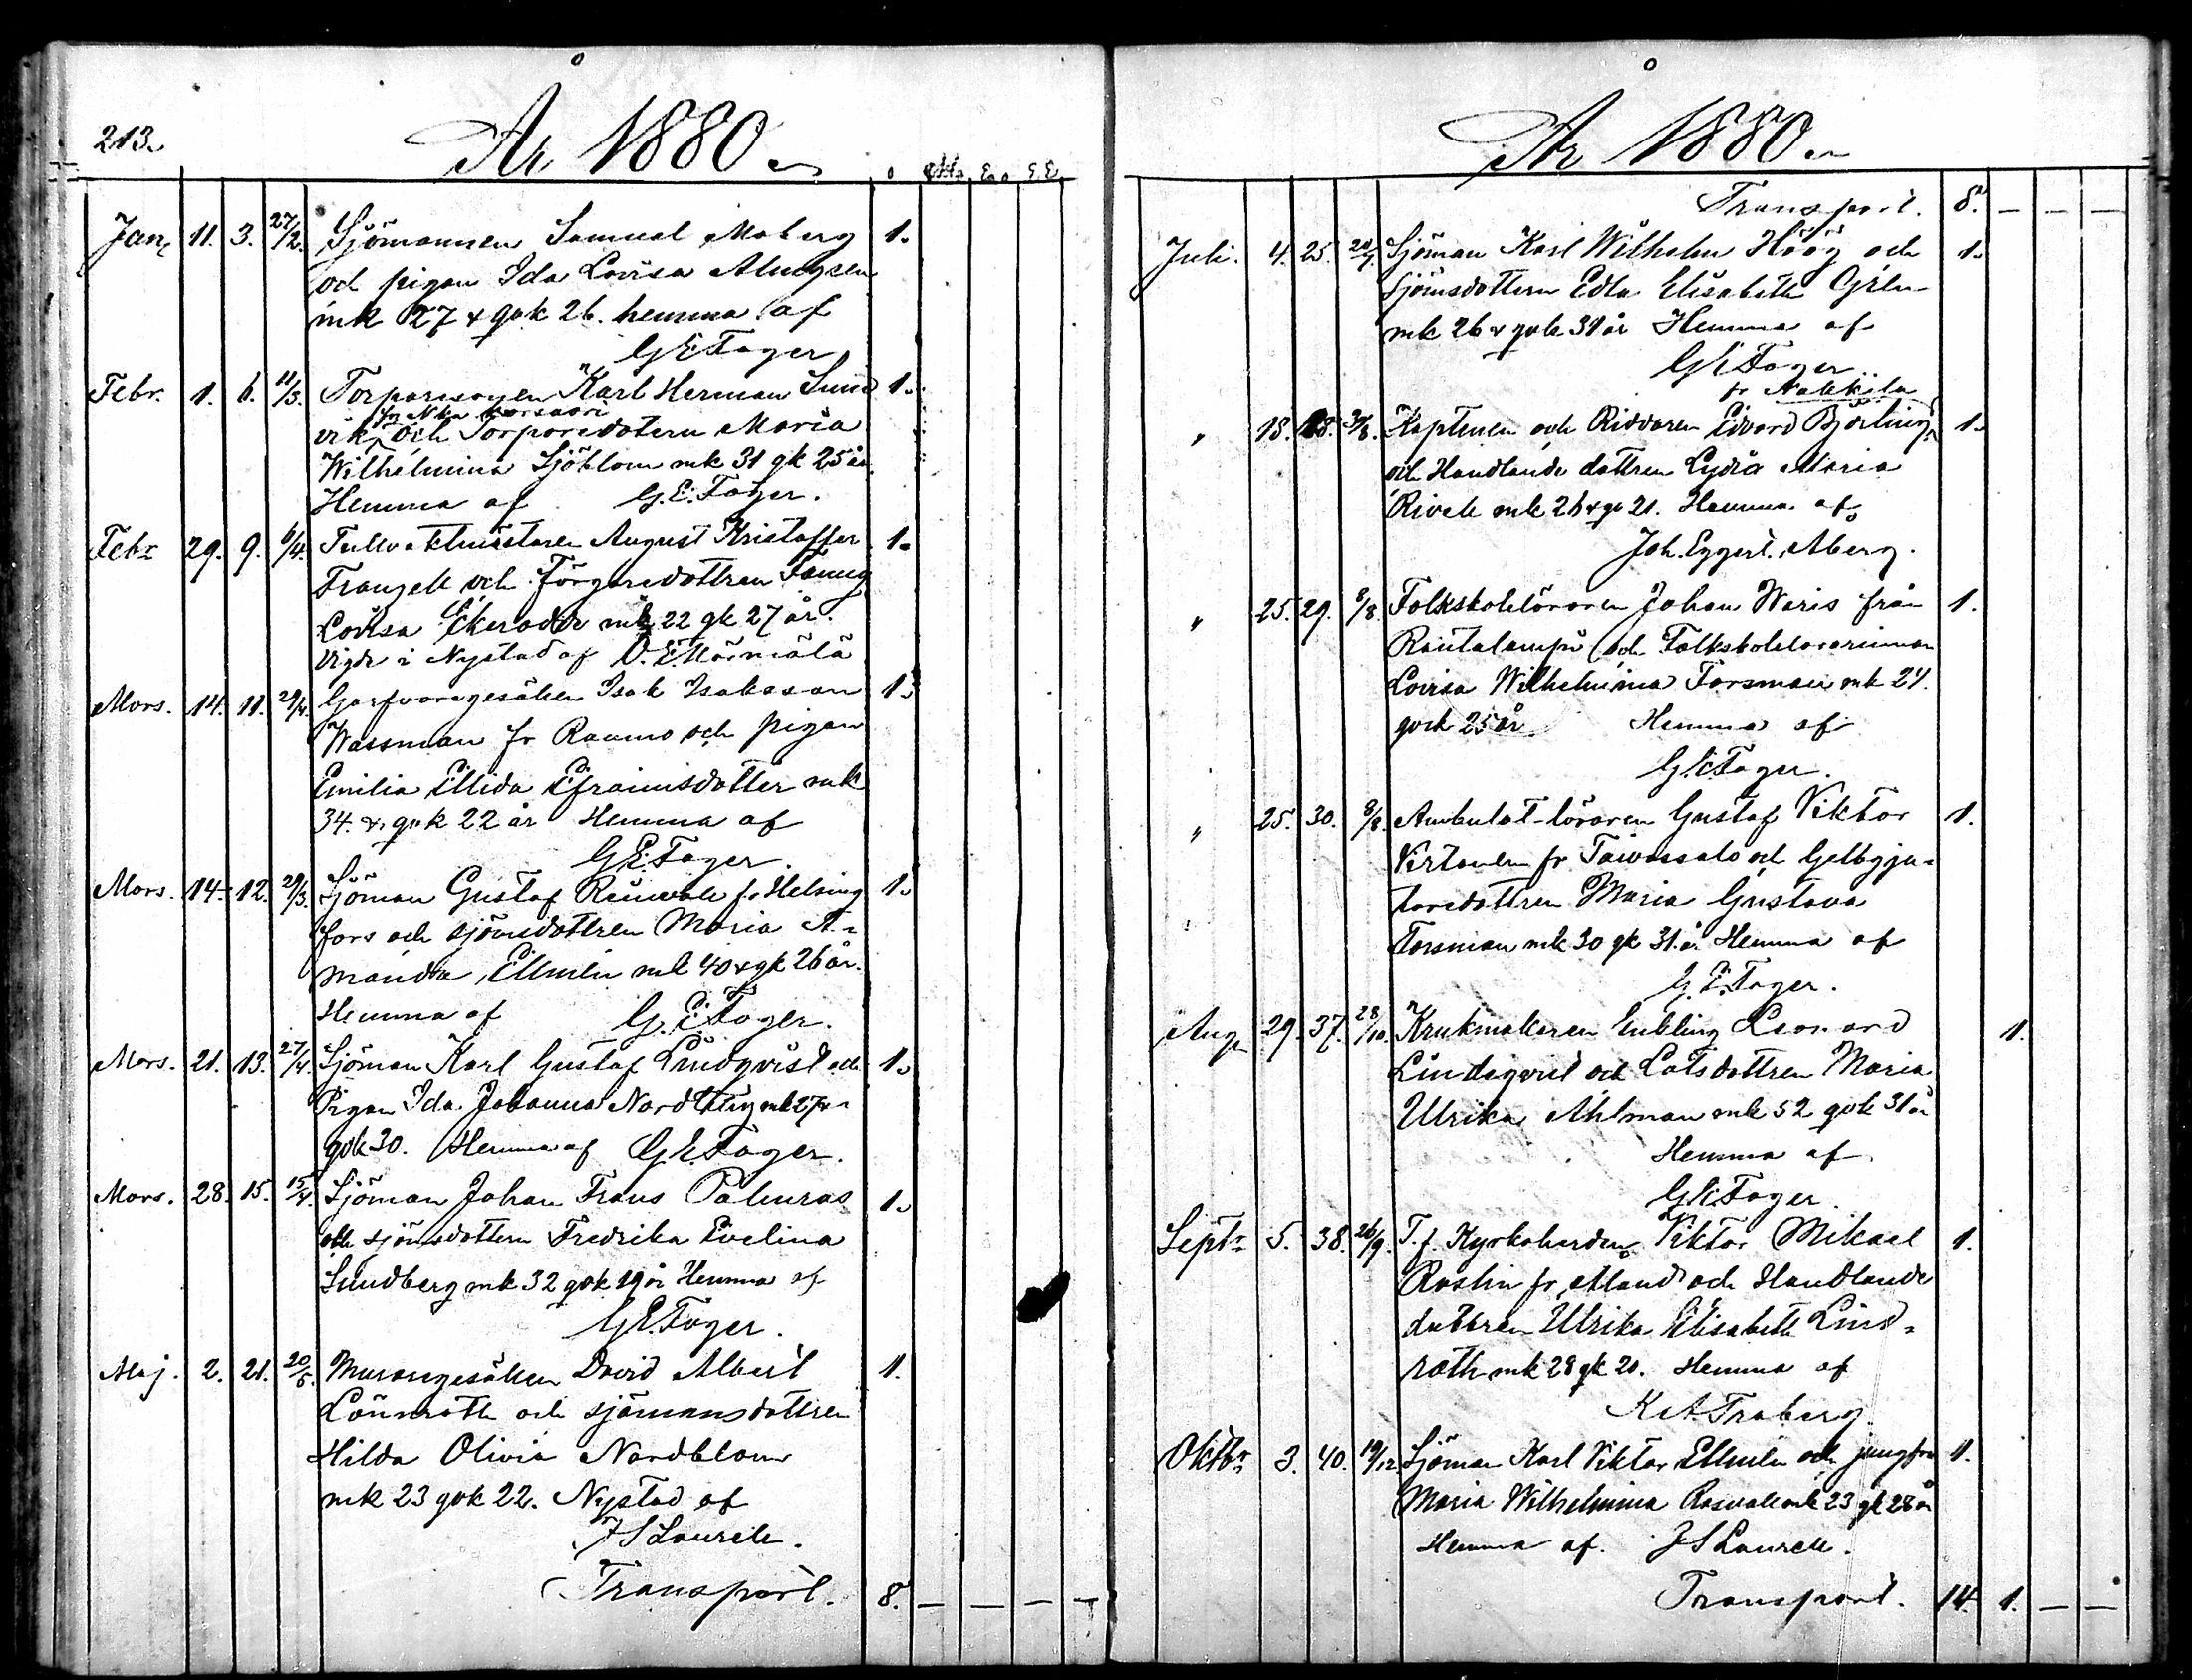 213.
År 1880.
Jan. 11. 3. 27/2. Sjömannen Samuel Moberg 1.
och pigan Ida Lovisa Almgren
mk 27 & qvk 26. hemma af
G E Fager
Febr. 1. 6. 11/3. Torparesonen Karl Herman Sund 1.
vik, och Torparedotern Maria
Wilhelmina Sjöblom mk 31 qk 25 år
Hemma af G. E. Fager.
Febr 29. 9. 6/4. August Kristoffer 1.
Franzell och Färgaredottren Fanny
Lovisa mk 22 qk 27 år.
Vigde i Nystad af
Mars. 14. 11. 29/4. Garfvaregesällen Isak Isaksson 1.
Wassman fr Raumo och pigan
Emilia Ellida Efraimsdotter mk
34. & qvk 22 år Hemma af
G E Fager.
Mars. 14. 12. 29/3. Sjöman Gustaf fr Helsing 1.
fors och sjömsdottren Maria A-
manda Ellmén mk 40 & qk 26 år.
Hemma af G. E. Fager.
Mars. 21. 13. 27/4. Sjöman Karl Gustaf Lindqvist och 1.
Pigan Ida Johanna mk 27 &
qvk 30. Hemma af G. E. Fager.
Mars. 28. 15. 15/4. Sjöman Johan Frans Palmros 1.
och sjömsdottern Fredrika Evelina
Sundberg mk 32 qvk 19 år Hemma af
G E. Fager.
Maj. 2. 21. 20/5. Muraregesällen David Albert 1.
Lönnroth och sjömansdottren
Hilda Olivia Nordblom
mk 23 qvk 22. Nystad af
J S Laurell.
Transport. 8. — — — —
År 1880.
Transport. 8. — — —
Juli. 4. 25. 20/7. Sjöman Karl Wilhelm Höög och 1.
Sjömsdottern Edla Elisabeth Grén
mk 26 & qvk 31 år Hemma af
G E Fager.
fr Nakkila
" 18. 28. 3/8. Kaptenen och Riddaren Edvard Björling, 1.
och Handlande dottren Lydia Maria
Rivell mk 26 & qv 21. Hemma af
Joh. Eggert. Åberg.
" 25. 29. 8/8. Folkskoleläraren Johan Waris från 1.
Rautalampi och Folkskolelärarinnan
Lovisa Wilhelmina Forsman mk 24.
qvk 25 år Hemma af
G. E. Fager.
" 25. 30. 8/8. Ambulat-läraren Gustaf Viktor 1.
Virtanen fr Taivassalo och Gelbgju-
taredottren Maria Gustava
Forsman mk 30 qk 31 år Hemma af
G. E. Fager.
Aug. 29. 37. 28/10. Krukmakaren Enkling Leonard 1.
Lindeqvist och Lotsdottren Maria
Ulrika Ahlman mk 52 qvk 31 år
Hemma af
G E. Fager
Septr 5. 38. 26/9. T. f. Kyrkoherden Viktor Mikael 1.
Roslin fr Åland och Handlande
dottren Ulrika Elisabeth Lind-
roth mk 28 qk 20. Hemma af
K A Froberg
Oktbr 3. 40. 19/12. Sjöman Karl Viktor Ellmén och jungfru 1.
Maria Wilhelmina Rosvall mk 23 qk 28 år
Hemma af. J S Laurell.
Transport. 14. 1. — —